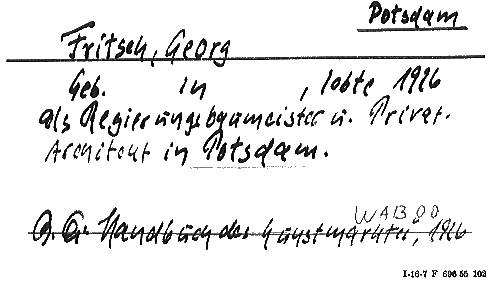 Potsdam
Fritsch, Georg
Geb. in , lebte 1926
als Regierungsbaumeister u. Privat-
Architekt in Potsdam.
WAB 00
Handbuch des Kunstmarktes, 1926
I-16-7 F 696 55 102